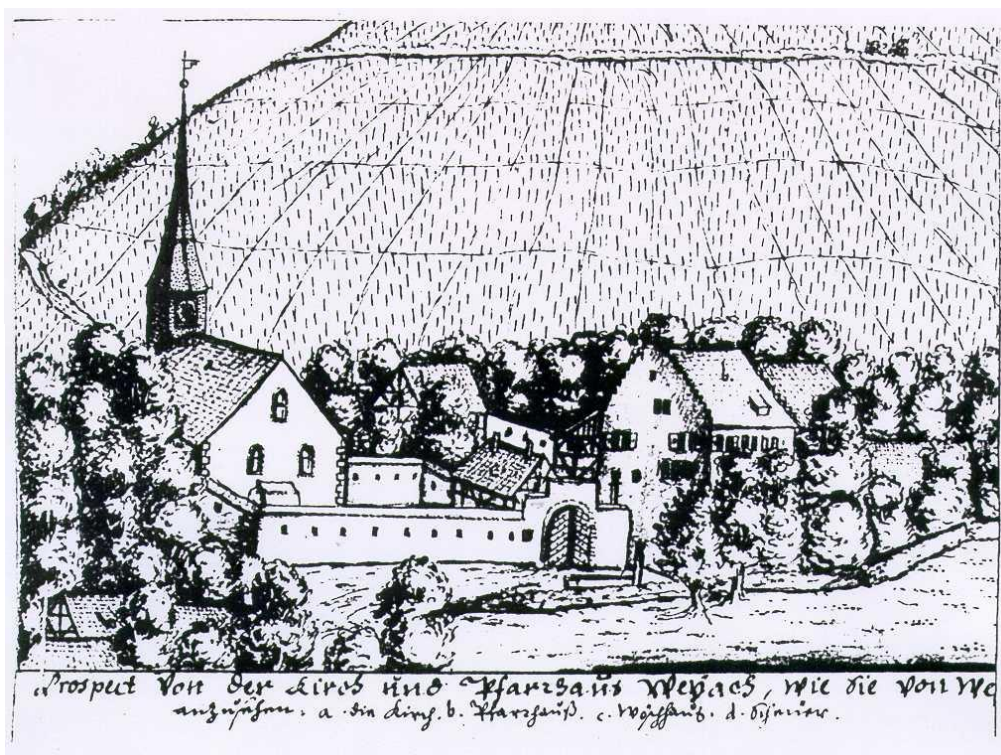 Prospect Von der Kirch und Pfarrhaus Weyach, wie sie Von We
anzusehen. a. die Kirch. b. Pfarrhauß. c. Wöschhaus. d. Scheuer.